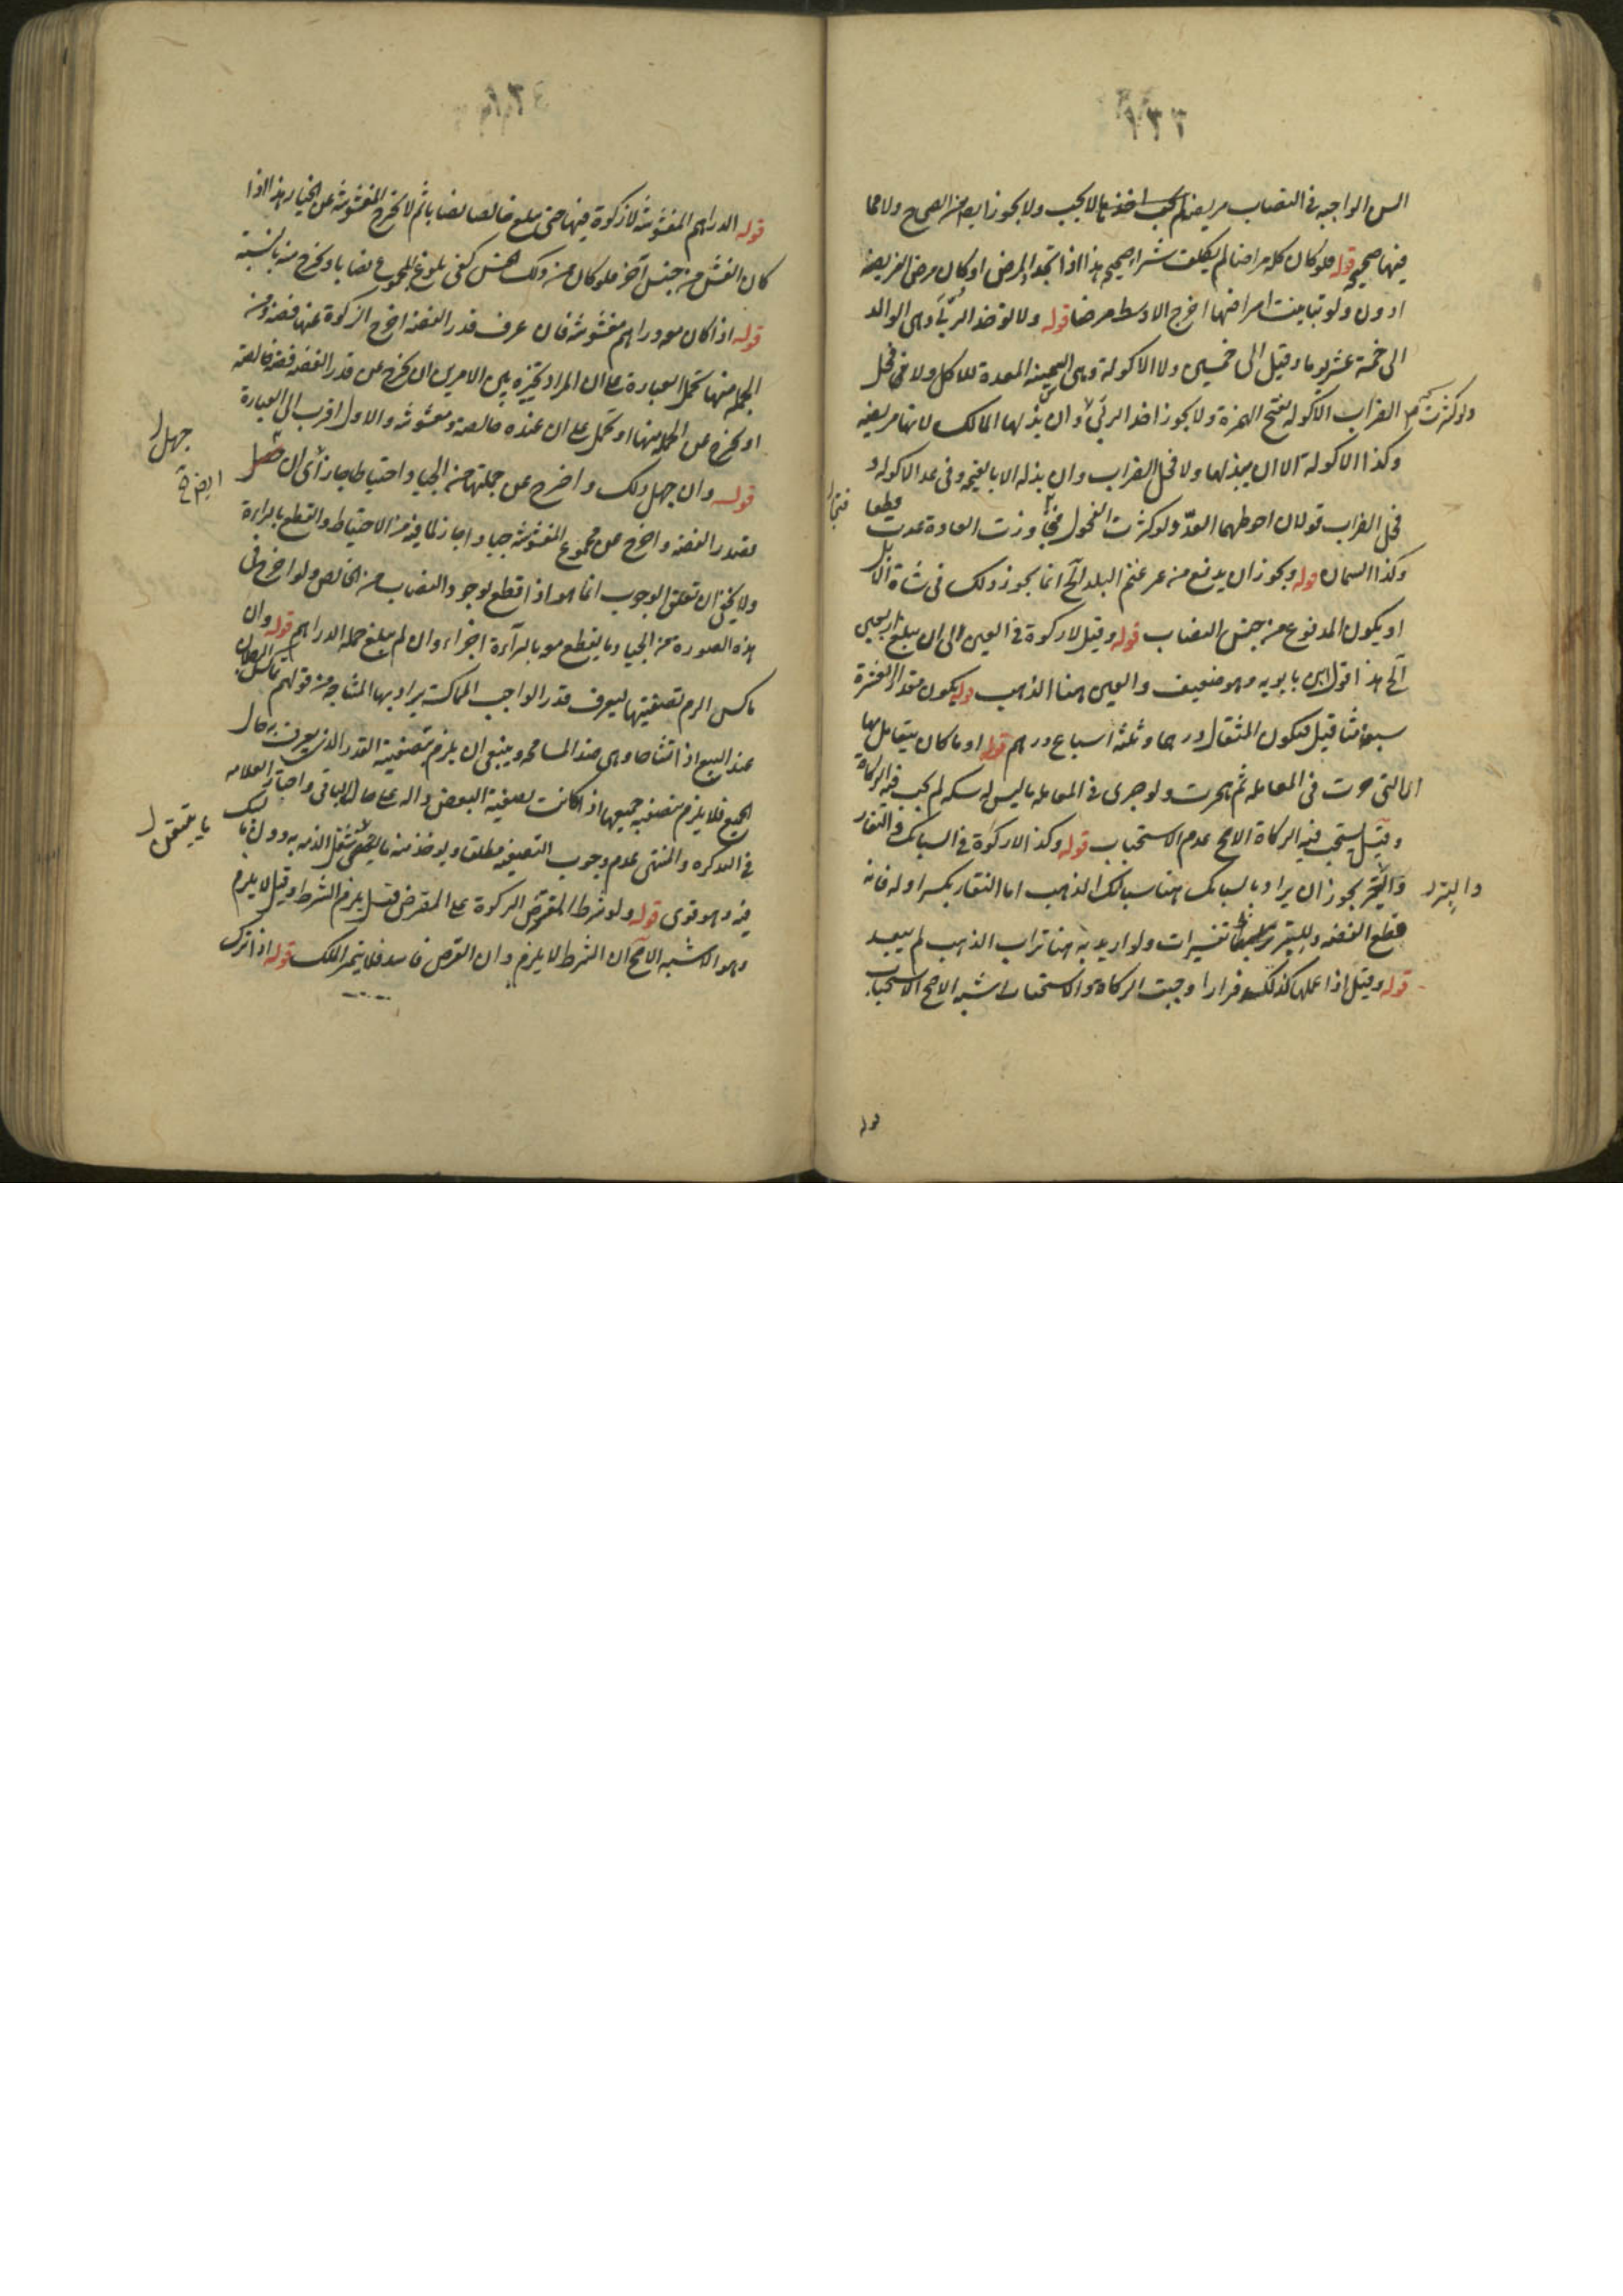 ١٣٣
السن الواجبه في النصاب مريضه لم يجب اخذها لا يجب ولا يجوز ايضا من الصحاح ولا مما
فيها صحيح قوله فلو كان كله مراضا لم يكلف شراء صحيح هذا اذا اتحد المرض او كان مرض الفريضه
ادون ولو تباينت امراضها اخرج الاوسط مرضا قوله ولا توخذ الربى وهي الوالد
الى خمسة عشر يوما وقيل الى خمسين ولا الاكولة وهي السمينه المعدة للاكل ولا فحل
الضراب الاكوله بفتح الهمزة ولا يجوز اخذ الربى وان بذلها المالك لانها مريضه
وكذا الاكولة الا ان يبذلها ولا فحل الضراب وان بذله الا بالقيمه وفي عد الاكوله و
فحل الضراب قولان احوطهما العدّ ولو كثرت الفحول فجاوزت العادة عدت قطعا
وكذا السمان قوله ويجوز ان يدفع من غير غنم البلد الخ انما يجوز ذلك في شاة الابل
او يكون المدفوع من جنس النصاب قوله وقيل لا زكوة في العين الى ان يبلغ اربعين
الخ هذا قول ابن بابويه وهو ضعيف والعين هنا الذهب قوله يكون مقدار العشرة
سبعة مثاقيل فيكون المثقال درهما وثلثة اسباع درهم قوله او ما كان يتعامل بها
اي التي جرت في المعامله ثم هجرت ولو جرى في المعامله ما ليس له سكه لم يجب فيه الزكاة
وقيل يستحب فيه الزكاة الاصح عدم الاستحباب قوله وكذا لا زكوة في السبائك والنقار
والتبر يجوز ان يراد بالسبائك هنا سبائك الذهب اما النقار بكسر اوله فانه
قطع الفضه وللتبر تفسيرات ولو اريد به هنا تراب الذهب لم يبعد
قوله وقيل اذا عملها كذلك فرارا وجبت الزكاة والاستحباب اشبه الاصح الاستحباب
قوله
ولو كثرت
والتبر
١٣٤
قوله الدراهم المغشوشة لا زكوة فيها حتى يبلغ خالصها نصابا ثم لا يخرج المغشوشة عن الجياد هذا اذا
كان الغش من جنس آخر فلو كان من ذلك الجنس كفى بلوغ المجموع نصابا ويخرج منه بالنسبة
قوله اذا كان معه دراهم مغشوشة فان عرف قدر الفضة اخرج الزكوة عنها فضة ومن
الجمله منها تحمل العبارة على ان المراد تخييره بين الامرين ان يخرج عن قدر الفضه فضة خالصه
او يخرج عن الجمله منها او تحمل على ان عنده خالصة ومغشوشه والاول اقرب الى العبارة
قوله وان جهل ذلك واخرج عن جملتها من الجياد احتياطا جاز اي ان جهل
بقدر الفضه واخرج عن مجموع المغشوشة جيادا جاز لما فيه من الاحتياط والقطع بالبراءة
ولا يخفى ان تعلق الوجوب انما هو اذا قطع بوجود النصاب من الخالص ولو اخرج في
هذه الصورة من الجياد ما يقطع معه بالبراءة اجزاء وان لم يبلغ جمله الدراهم قوله وان
ماكس الزم تصفيتها ليعرف قدر الواجب المماكسة يراد بها المشاحه من قولهم تماكس الرجلان
عند البيع اذا تشاحا وهي ضد المسامحه وينبغي ان يلزم بتصفية القدر الذي يعرف به حال
الجميع فلا يلزم بتصفيه جميعها اذا كانت تصفية البعض داله على حال الباقي واختار العلامه
في التذكره والمنتهى عدم وجوب التصفيه مطلقا ويوخذ منه ما يتحقق شغل الذمه به دون ما ليس
فيه وهو قوى قوله ولو شرط المقترض الزكوة على المقرض قيل يلزم الشرط وقيل لا يلزم
وهو الاشبه الاصح ان الشرط لا يلزم وان القرض فاسد فلا يتم الملك قوله اذا ترك
جهل